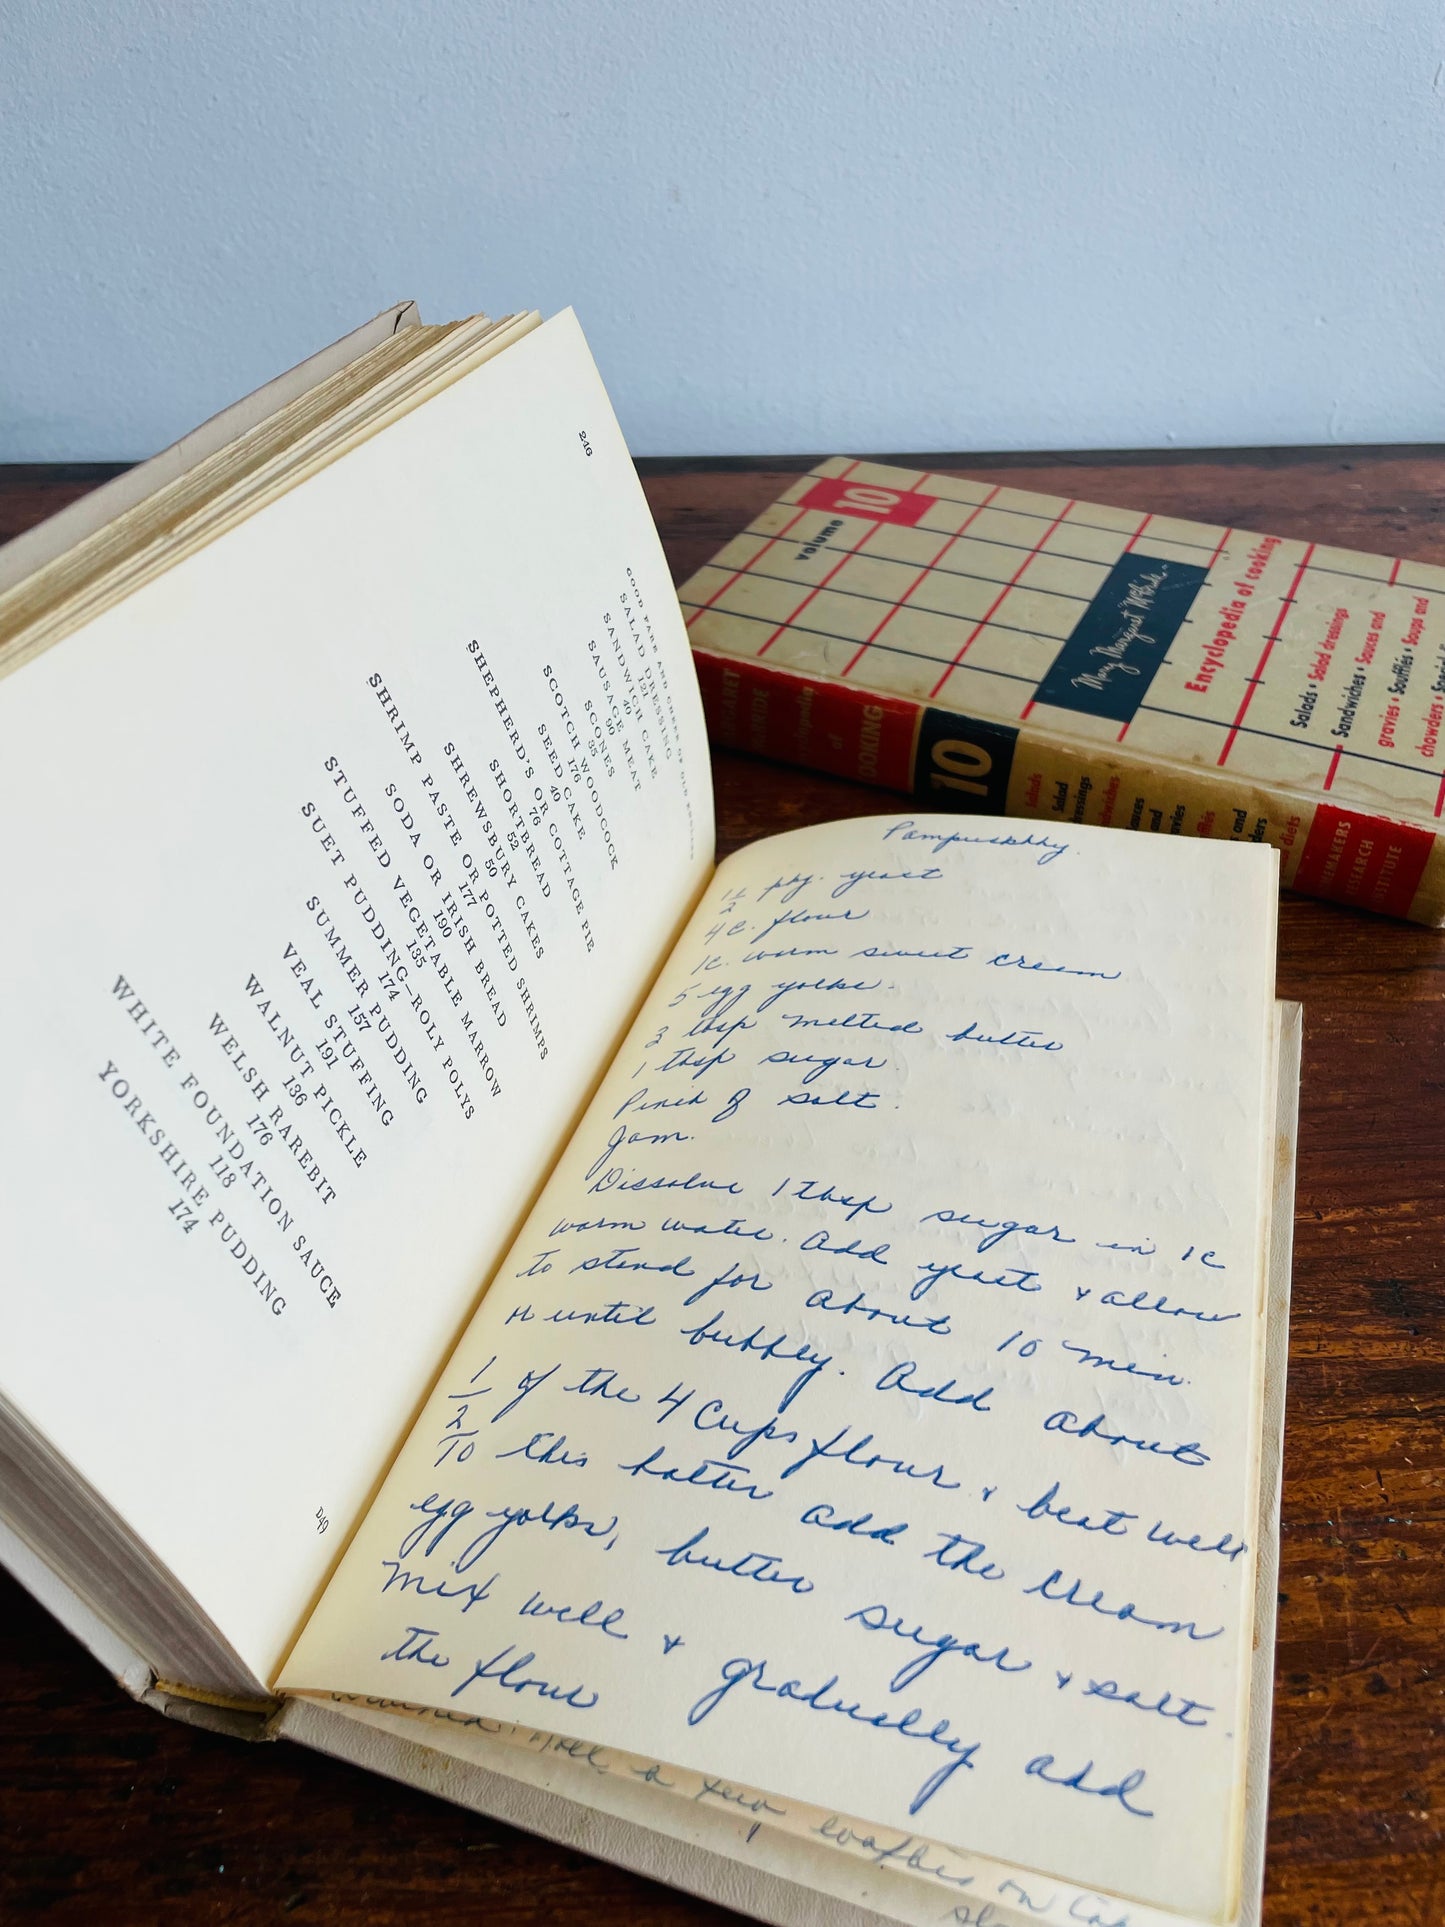 246
GOOD FARE AND CHEER OF OLD ENGLAND
SALAD DRESSING
121
SANDWICH CAKE
40
SAUSAGE MEAT
90
SCONES
35
SCOTCH WOODCOCK
176
SEED CAKE
40
SHEPHERD'S OR COTTAGE PIE
76
SHORTBREAD
52
SHREWSBURY CAKES
50
SHRIMP PASTE OR POTTED SHRIMPS
177
SODA OR IRISH BREAD
190
STUFFED VEGETABLE MARROW
135
SUET PUDDING—ROLY POLYS
174
SUMMER PUDDING
157
VEAL STUFFING
191
WALNUT PICKLE
136
WELSH RAREBIT
176
WHITE FOUNDATION SAUCE
118
YORKSHIRE PUDDING
174
D49
Pampuskhky.
1 1/2 pkg. yeast
4 c. flour
1 c. warm sweet cream
5 egg yolks.
3 tbsp melted butter
1 tbsp sugar
Pinch of salt.
Jam.
Dissolve 1 tbsp sugar in 1 c
warm water. Add yeast & allow
to stand for about 10 min.
or until bubbly. Add about
1/2 of the 4 cups flour & beat well
To this batter add the cream
egg yolks, butter sugar & salt.
Mix well & gradually add
the flour
Roll a few
on
volume 10
Mary Margaret McBride
Encyclopedia of cooking
Salads • Salad dressings
Sandwiches • Sauces and
gravies • Soufflés • Soups and
chowders •
of
COOKING
10
Salads
Salad
RESEARCH